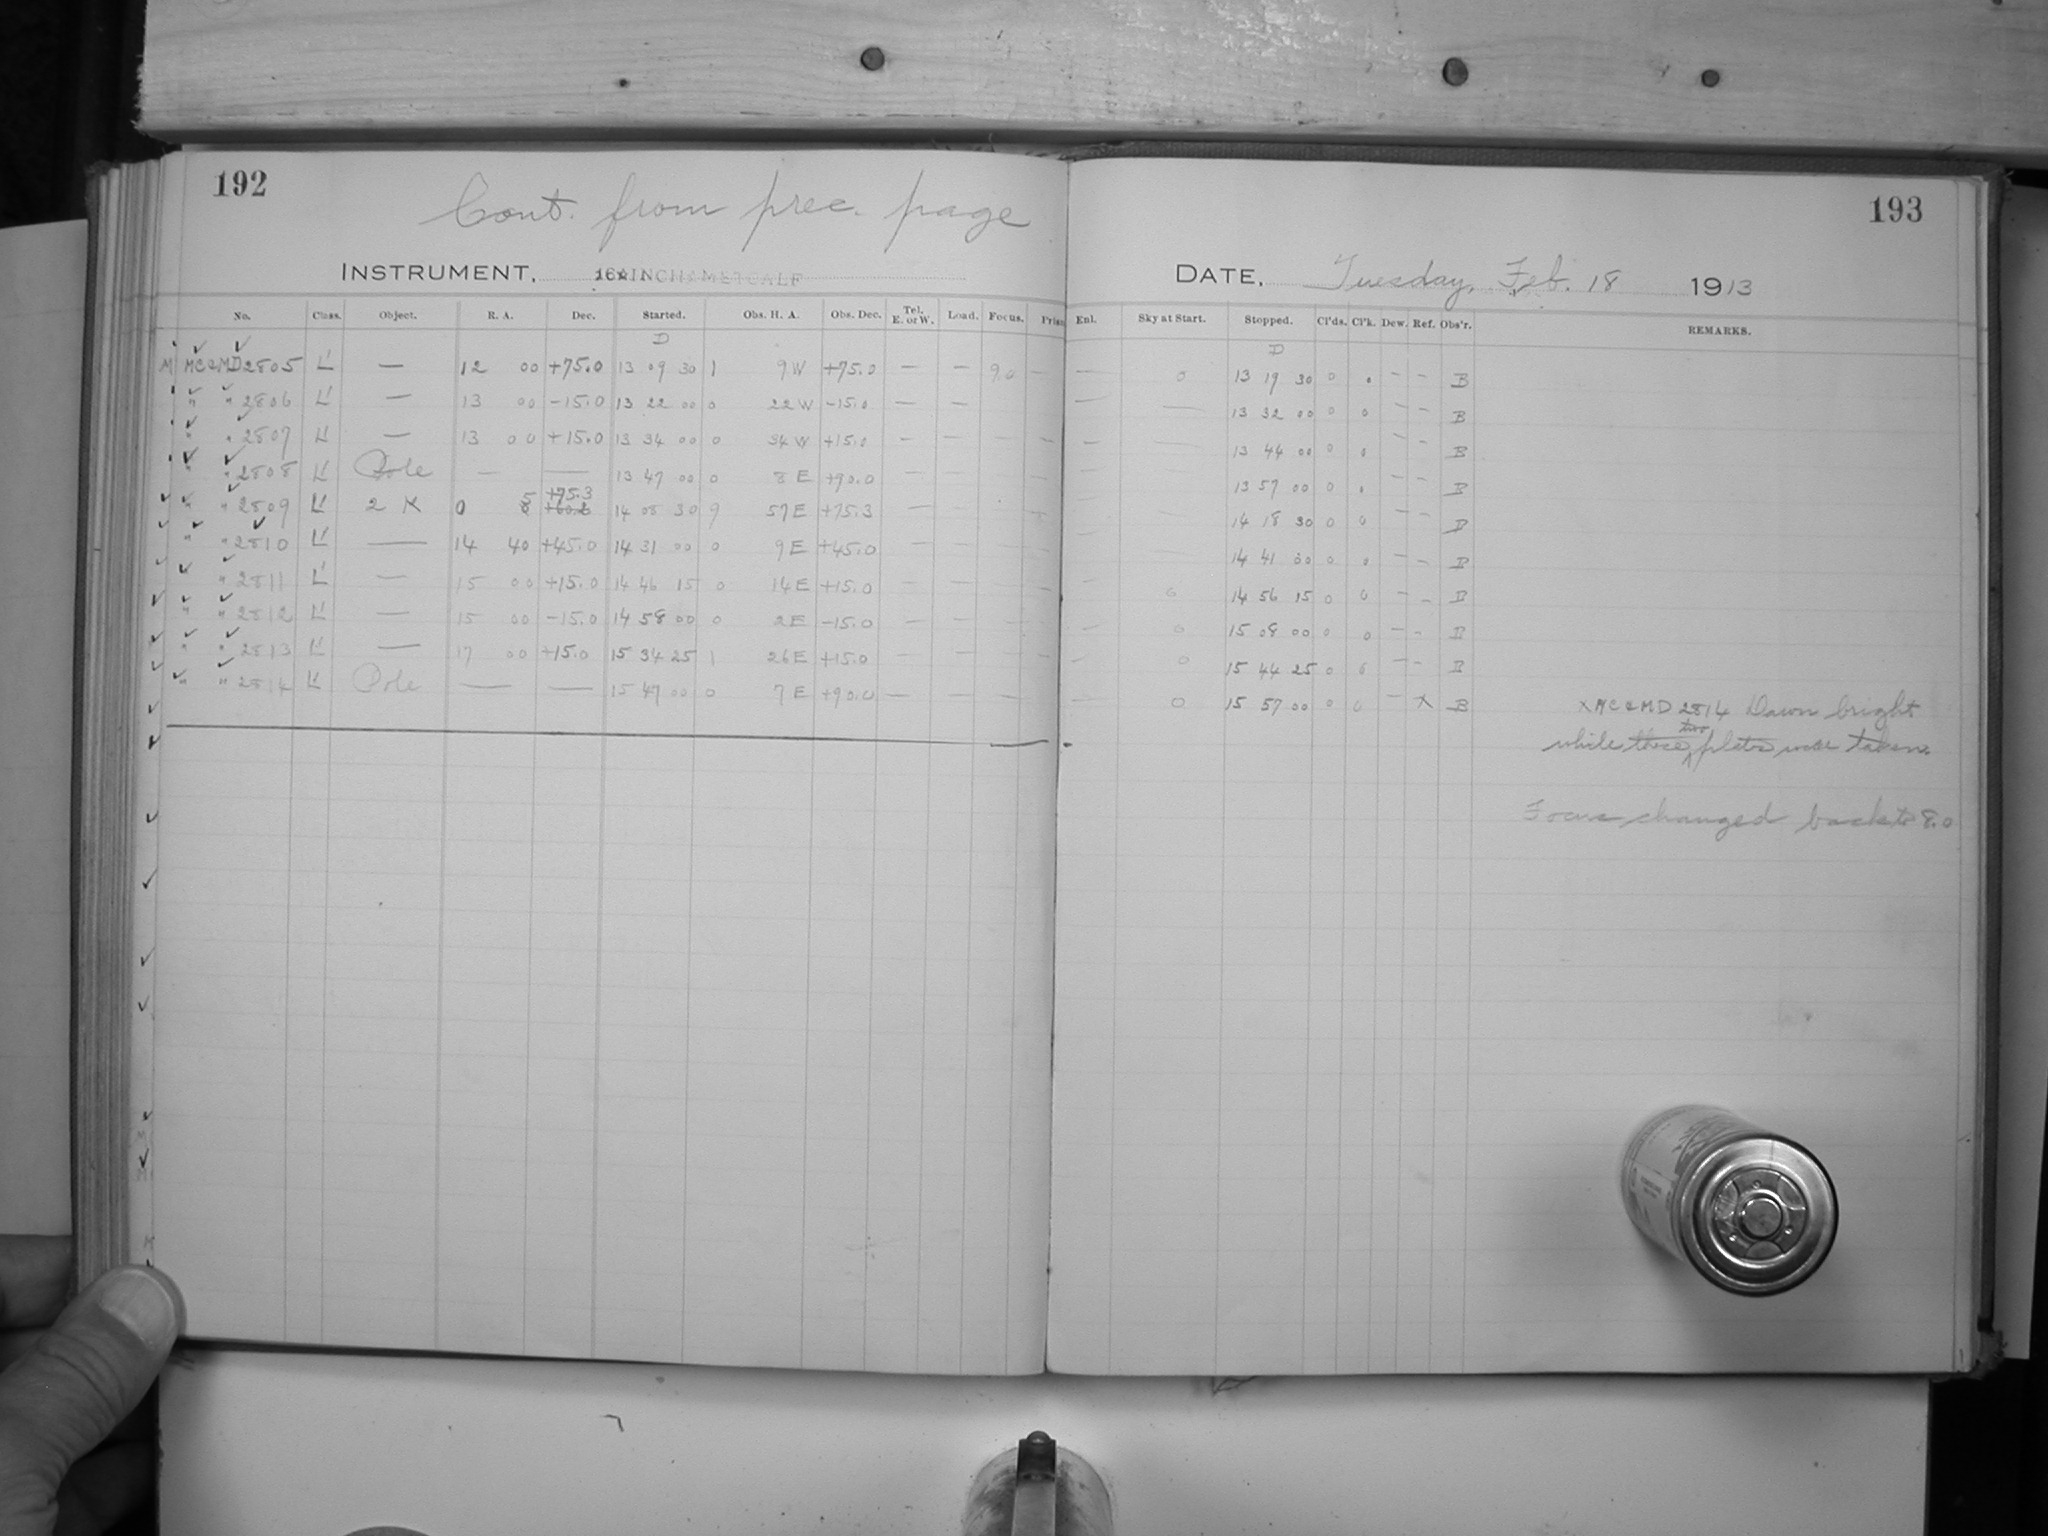 192
Cont. from prec. page
INSTRUMENT, 16 INCH METCALF
No. Class. Object. R. A. Dec. Started. Obs. H. A. Obs. Dec. Tel. E. or W. Load. Focus. Prism
D
MC&MD 2805 L' — 12 00 +75.0 13 09 30 1 9 W +75.0 — — 9.0 —
" " 2806 L' — 13 00 -15.0 13 22 00 0 22 W -15.0 — —
" " 2807 L' — 13 00 +15.0 13 34 00 0 34 W +15.0 — — — —
" " 2808 L' Pole — — 13 47 00 0 8 E +90.0 — —
+75.3
" " 2809 L' 2 K 0 5 14 08 30 9 57 E +75.3 —
" " 2810 L' — 14 40 +45.0 14 31 00 0 9 E +45.0 —
" " 2811 L' — 15 00 +15.0 14 46 15 0 14 E +15.0 — —
" " 2812 L' — 15 00 -15.0 14 58 00 0 2 E -15.0 — —
" " 2813 L' — 17 00 +15.0 15 34 25 1 26 E +15.0 — —
" " 2814 L' Pole — — 15 47 00 0 7 E +90.0 — — — —
193
DATE, Tuesday, Feb. 18 1913
Enl. Sky at Start. Stopped. Cl'ds. Cl'k. Dew. Ref. Obs'r. REMARKS.
D
— 0 13 19 30 0 0 — — B
— — 13 32 00 0 0 — — B
— — 13 44 00 0 0 — — B
— — 13 57 00 0 0 — — B
— — 14 18 30 0 0 — — B
— — 14 41 00 0 0 — — B
— 0 14 56 15 0 0 — — B
— 0 15 08 00 0 0 — — B
— 0 15 44 25 0 0 — — B
— 0 15 57 00 0 0 — X B X MC&MD 2814 Dawn bright
two
while these plates were taken.
Focus changed back to 8.0